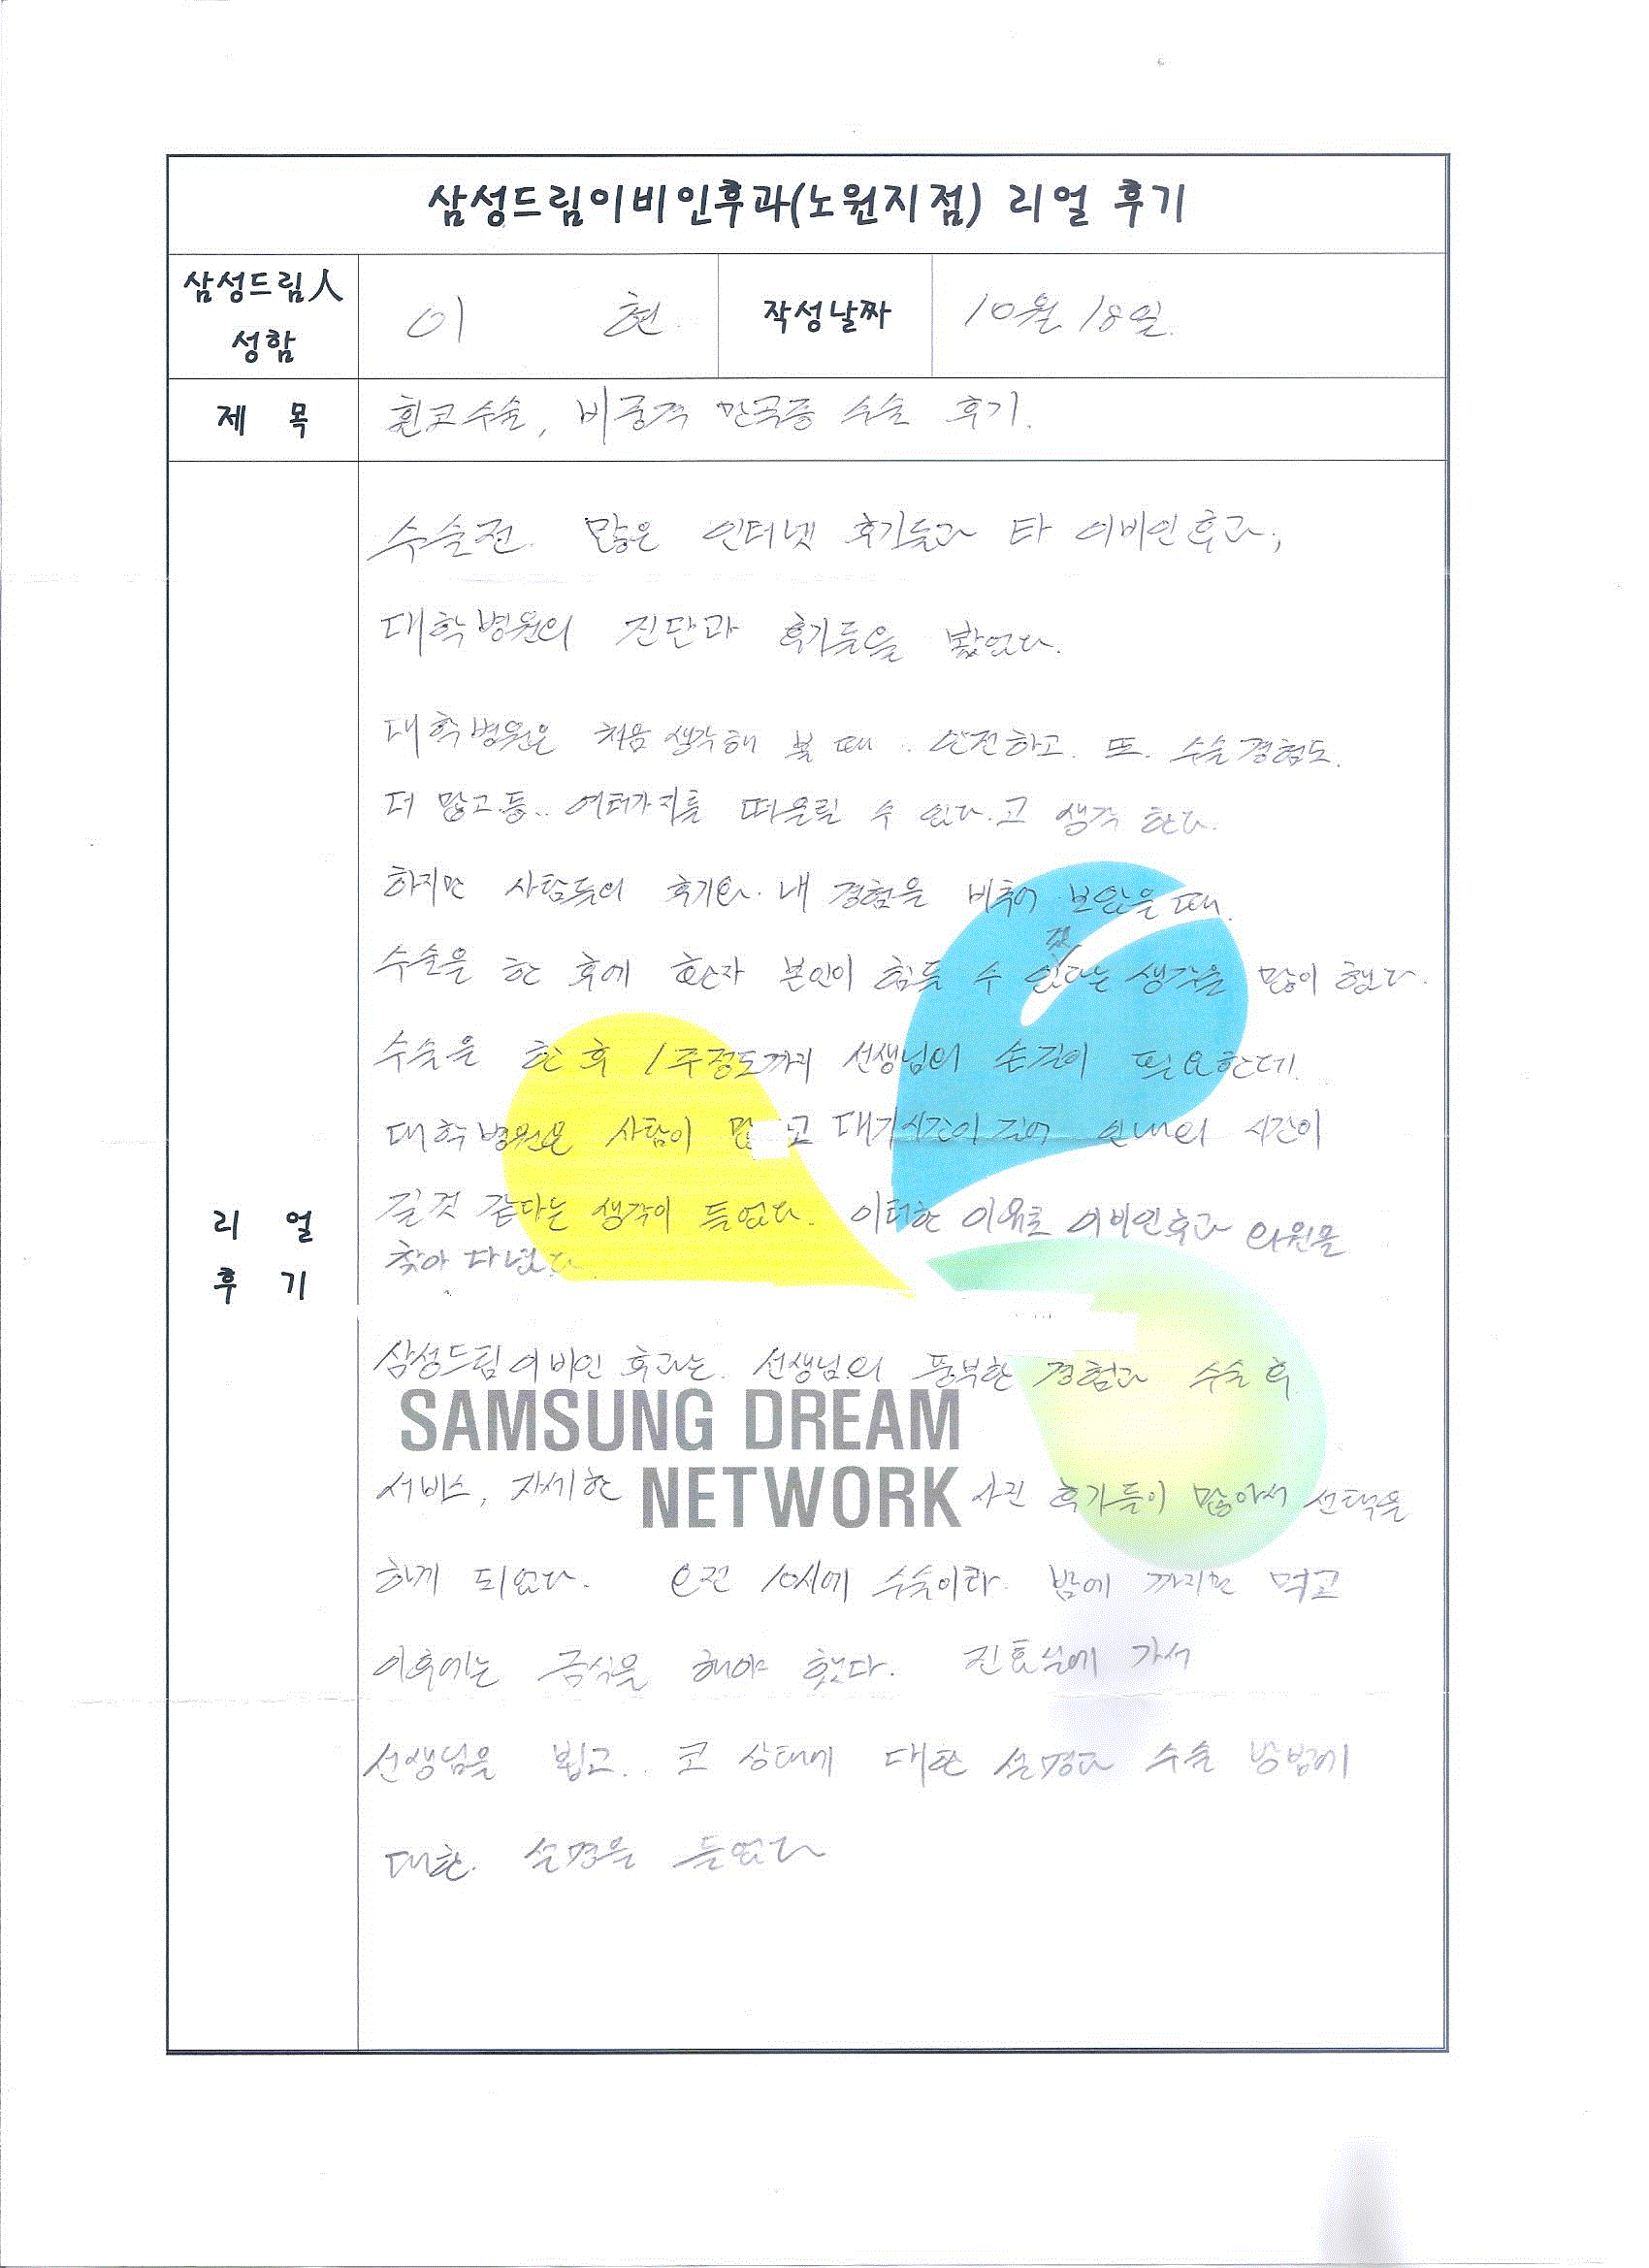 삼성드림이비인후과(노원지점) 리얼 후기
삼성드림人
성함
이 현
작성날짜
10월 18일.
제 목
휜코수술, 비중격 만곡증 수술 후기.
수술전. 많은 인터넷 후기들과 타 이비인후과,
대학병원의 진단과 후기들을 봤었다.
대학병원은 처음 생각해 볼 때. 안전하고. 또. 수술경험도.
더 많고 등.. 여러가지를 떠올릴 수 있다.고 생각 한다.
하지만 사람들의 후기와. 내 경험을 비추어 보았을 때.
수술을 한 후에 환자 본인이 힘들 수 있겠다는 생각을 많이 했다.
수술을 한 후 1주정도까지 선생님의 손길이 필요한데.
대학병원은 사람이 많고 대기시간이 길어 인내의 시간이
길것 같다는 생각이 들었다. 이러한 이유로 이비인후과 의원을
찾아 다녔다
리 얼
후 기
삼성드림이비인 후과는. 선생님의 풍부한 경험과 수술 후
SAMSUNG DREAM
서비스, 자세한 사진 후기들이 많아서 선택을
NETWORK
하게 되었다. 오전 10시에 수술이라. 밤에 까지만 먹고
이후에는 금식을 해야 했다. 진료실에 가서
선생님을 뵙고.. 코 상태에 대한 설명과 수술 방법에
대한. 설명을 들었다